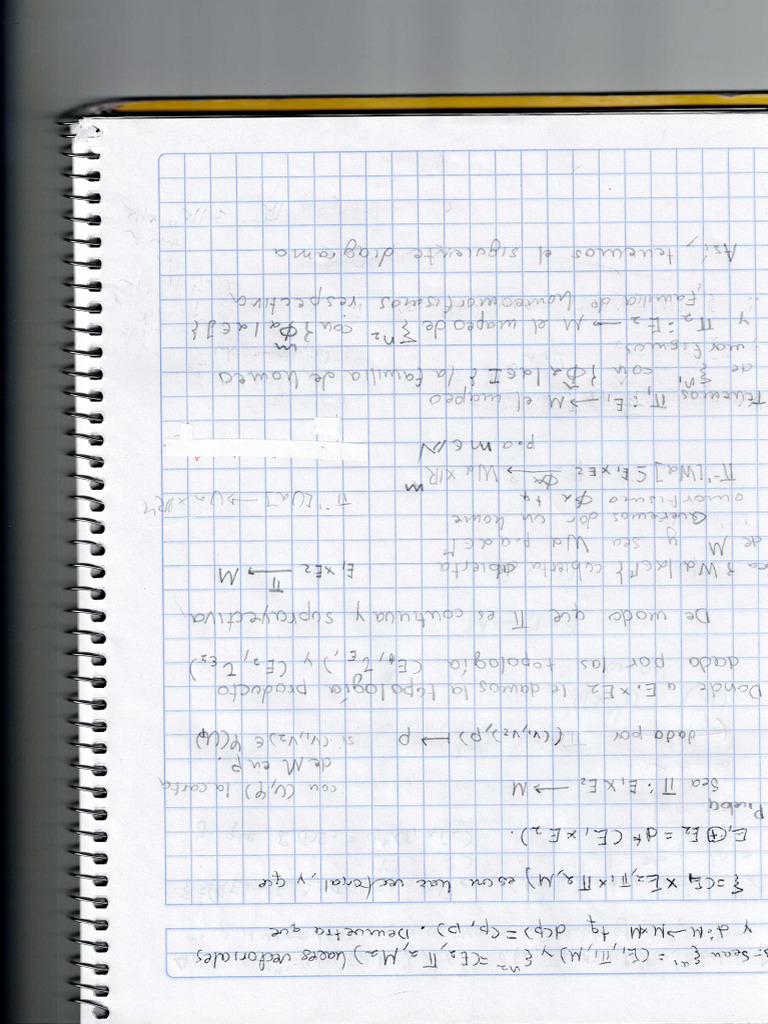 Sean ξ^n1 = (E1, π1, M) y ξ^n2 = (E2, π2, M2) haces vectoriales
y d: M → M×M tq d(p) = (p, p). Demuestra que
ξ = (E1 × E2, π1 × π2, M) es un haz vectorial, y que
E1 ⊕ E2 = d* (E1 × E2).
Prueba
Sea π : E1 × E2 → M con (U, φ) la carta
de M en p.
dada por ((v1, v2), p) → p si (v1, v2) ∈ φ(U)
Donde a E1 × E2 le damos la topología producto
dado por las topología (E1, τE1) y (E2, τE2)
De modo que π es continua y suprayectiva,
{Wα | α ∈ Γ} cubierta abierta E1 × E2 →π M
de M y sea Wα p.a α ∈ Γ
Queremos dar un homeo
omorfismo Φα tq π^-1[Uα] → Uα × R^n
π^-1[Wα] ⊆ E1 × E2 →Φα Wα × R^m
p.a m ∈ N
Tenemos π1 : E1 → M el mapeo
de ξ^n1 con {Φα | α ∈ I} la familia de homeo
morfismos
y π2 : E2 → M el mapeo de ξ^n2 con {Φα | α ∈ J}
familia de homeomorfismos respectiva
Así, tenemos el siguiente diagrama